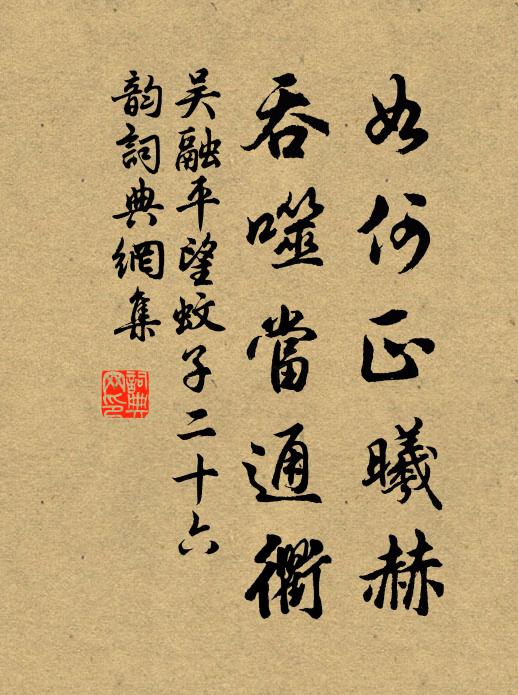 如何正曦赫
吞噬當通衢
吴融平望蚊子二十六
韵詞典網集
詞典
网印